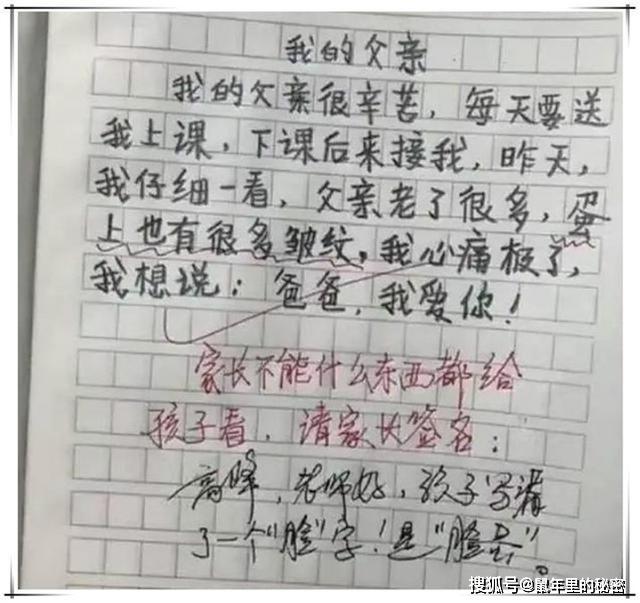 我的父亲
我的父亲很辛苦，每天要送
我上课，下课后来接我，昨天，
我仔细一看，父亲老了很多，蛋
上也有很多皱纹，我心痛极了，
我想说：爸爸，我爱你！
家长不能什么东西都给
孩子看，请家长签名：
高峰，老师好，孩子写漏
了一个"脸"字！是"脸蛋"。
搜狐号@鼠年里的秘密